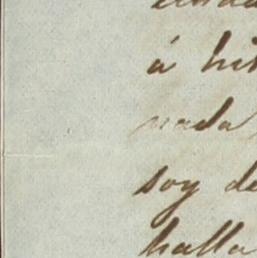 á his
nada
soy de
halla